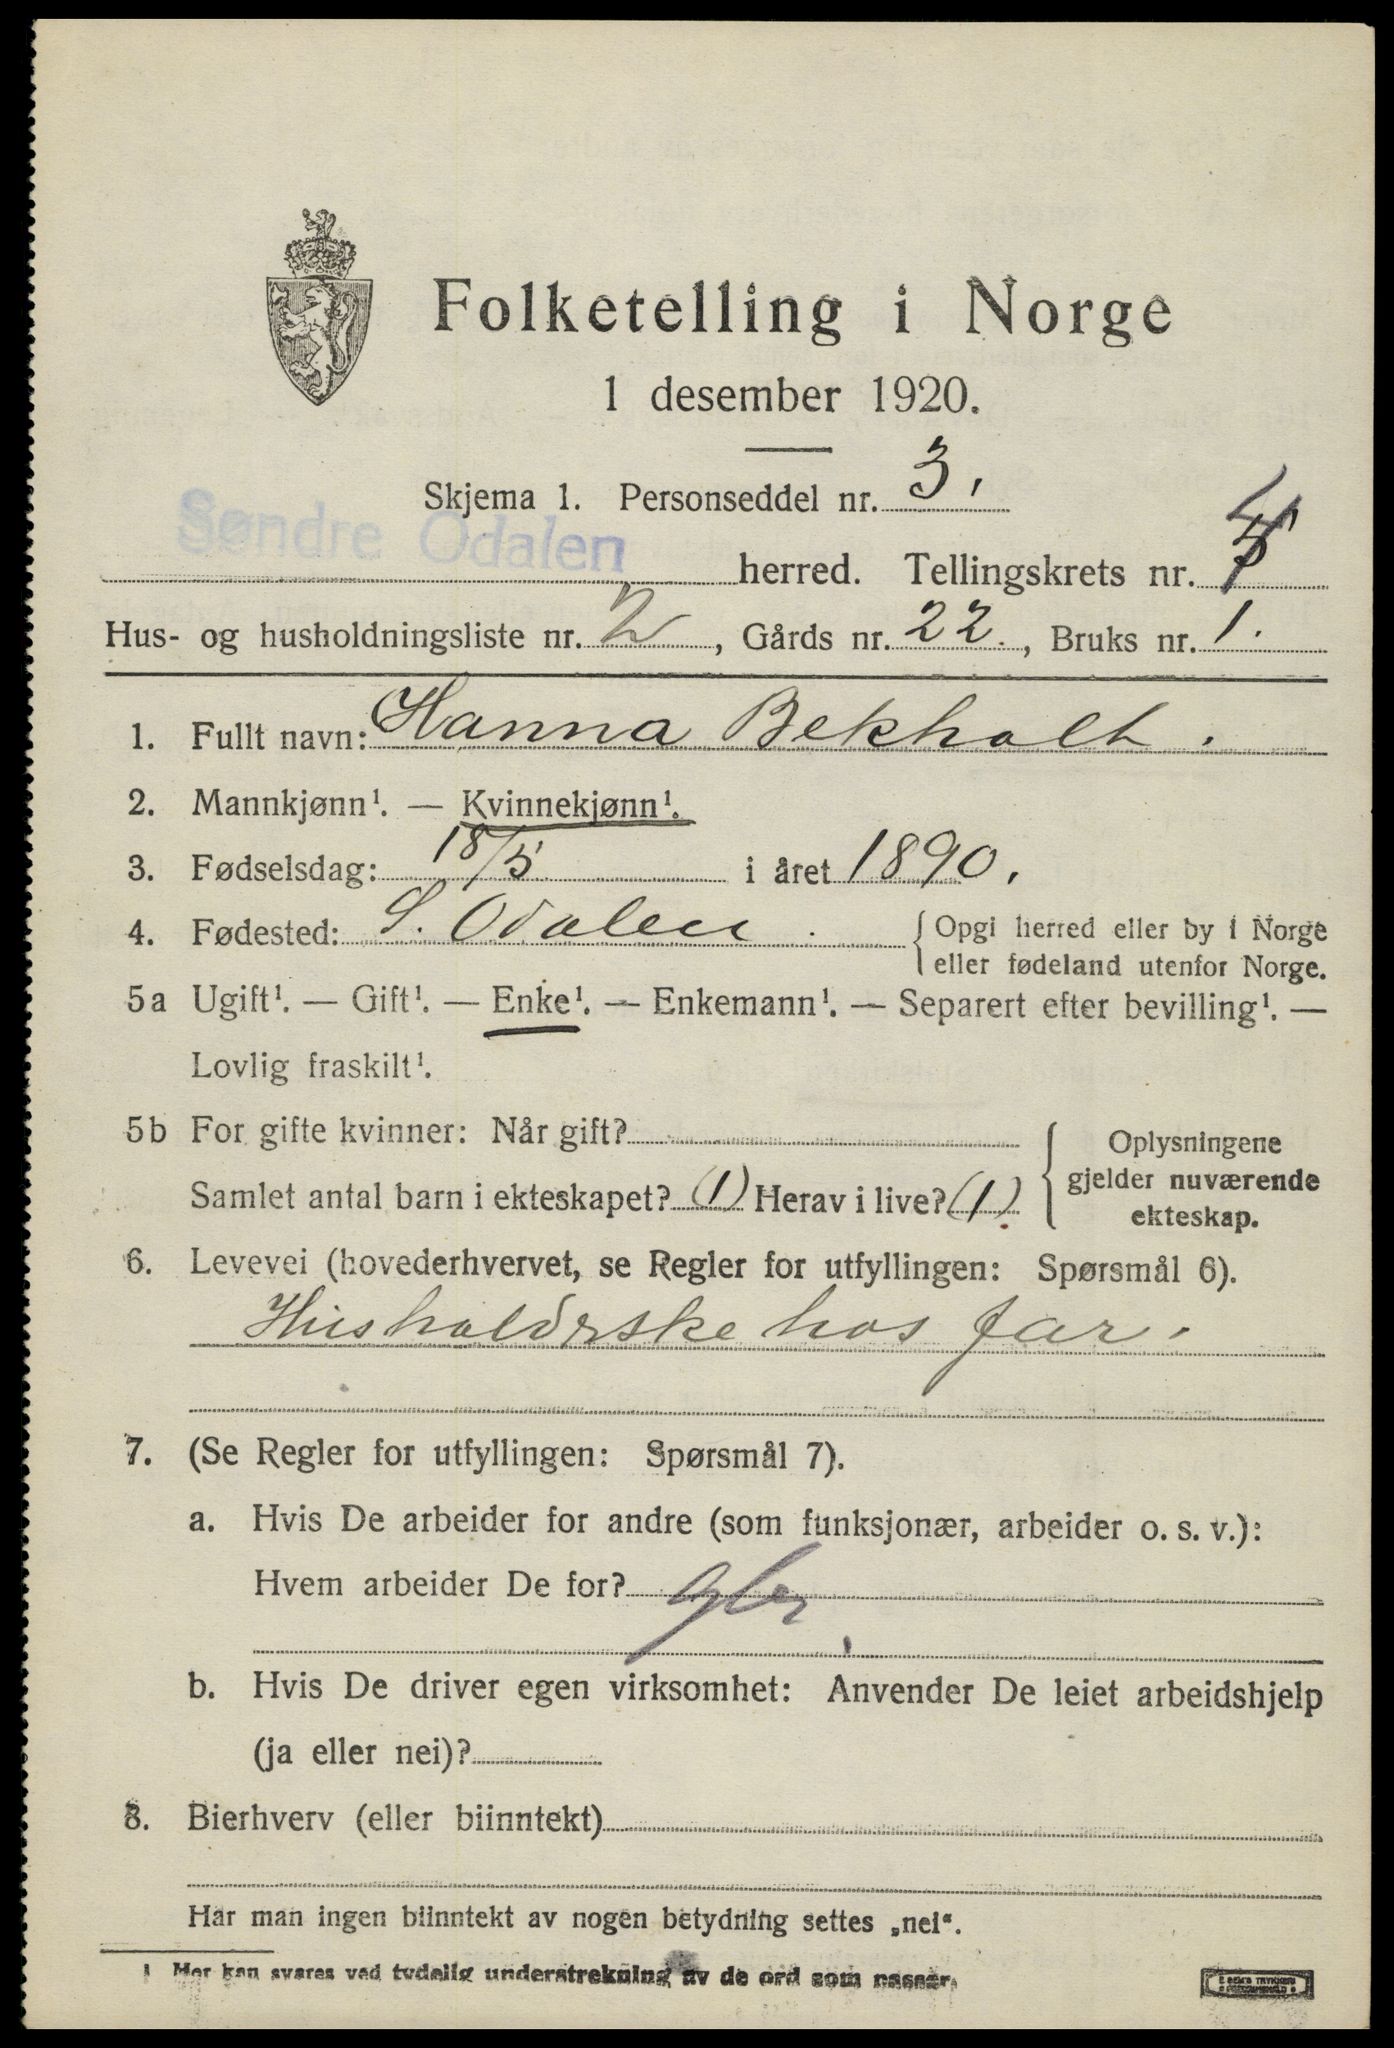 Folketelling i Norge
1 desember 1920.
Skjema 1. Personseddel nr. 3.
Søndre Odalen herred. Tellingskrets nr.
Hus- og husholdningsliste nr. 2, Gårds nr. 22., Bruks nr. 1.
1. Fullt navn: Hanna Bekholt.
2. Mannkjønn¹. — Kvinnekjønn¹.
3. Fødselsdag: 18/5 i året 1890.
4. Fødested: S. Odalen. { Opgi herred eller by i Norge
eller fødeland utenfor Norge.
5a Ugift¹. — Gift¹. — Enke¹. — Enkemann¹. — Separert efter bevilling¹. —
Lovlig fraskilt¹.
5b For gifte kvinner: Når gift?
Samlet antal barn i ekteskapet? (1) Herav i live? (1)
Oplysningene
gjelder nuværende
ekteskap.
6. Levevei (hovederhvervet, se Regler for utfyllingen: Spørsmål 6).
Husholderske hos far.
7. (Se Regler for utfyllingen: Spørsmål 7).
a. Hvis De arbeider for andre (som funksjonær, arbeider o. s. v.):
Hvem arbeider De for?
b. Hvis De driver egen virksomhet: Anvender De leiet arbeidshjelp
(ja eller nei)?
8. Bierhverv (eller biinntekt)
Har man ingen biinntekt av nogen betydning settes „nei“.
1 Her kan svares ved tydelig understrekning av de ord som passer.